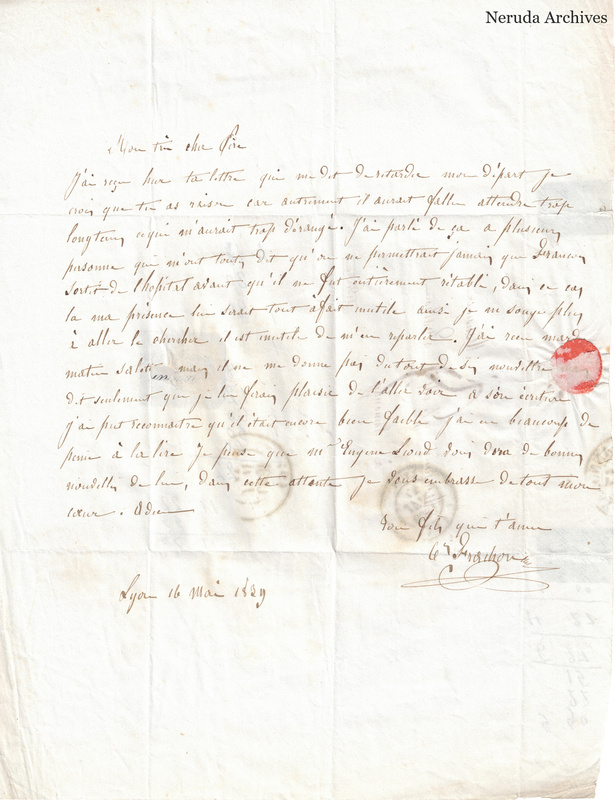 Neruda Archives
Mon très cher Père
J'ai reçu hier ta lettre qui me dit de retarder mon départ je
crois que tu as raison car autrement il aurait fallu attendre trop
longtems ce qui m'aurait trop dérangé. J'ai parlé de ça a plusieurs
personne qui m'ont toutes dit qu'on ne permettrait jamais que François
sortit de l'hôpital avant qu'il ne fut entièrement rétabli, dans ce cas
la ma présence lui serait tout afait inutile ainsi je ne songe plus
à aller le chercher il est inutile de m'en reparler. J'ai reçu mardi
matin mais il ne me donne pas du tout de ses nouvelles
dit seulement que je lui ferais plaisir de l'aller voir a son écriture
j'ai put reconnaitre qu'il était encore bien faible j'ai eu beaucoup de
peine à la lire Je pense que mr Eugène vous dira de bonnes
nouvelles de lui, dans cette attente je vous embrasse de tout mon
cœur. Adieu
ton fils qui t'aime
Frachon
Lyon 16 Mai 1839